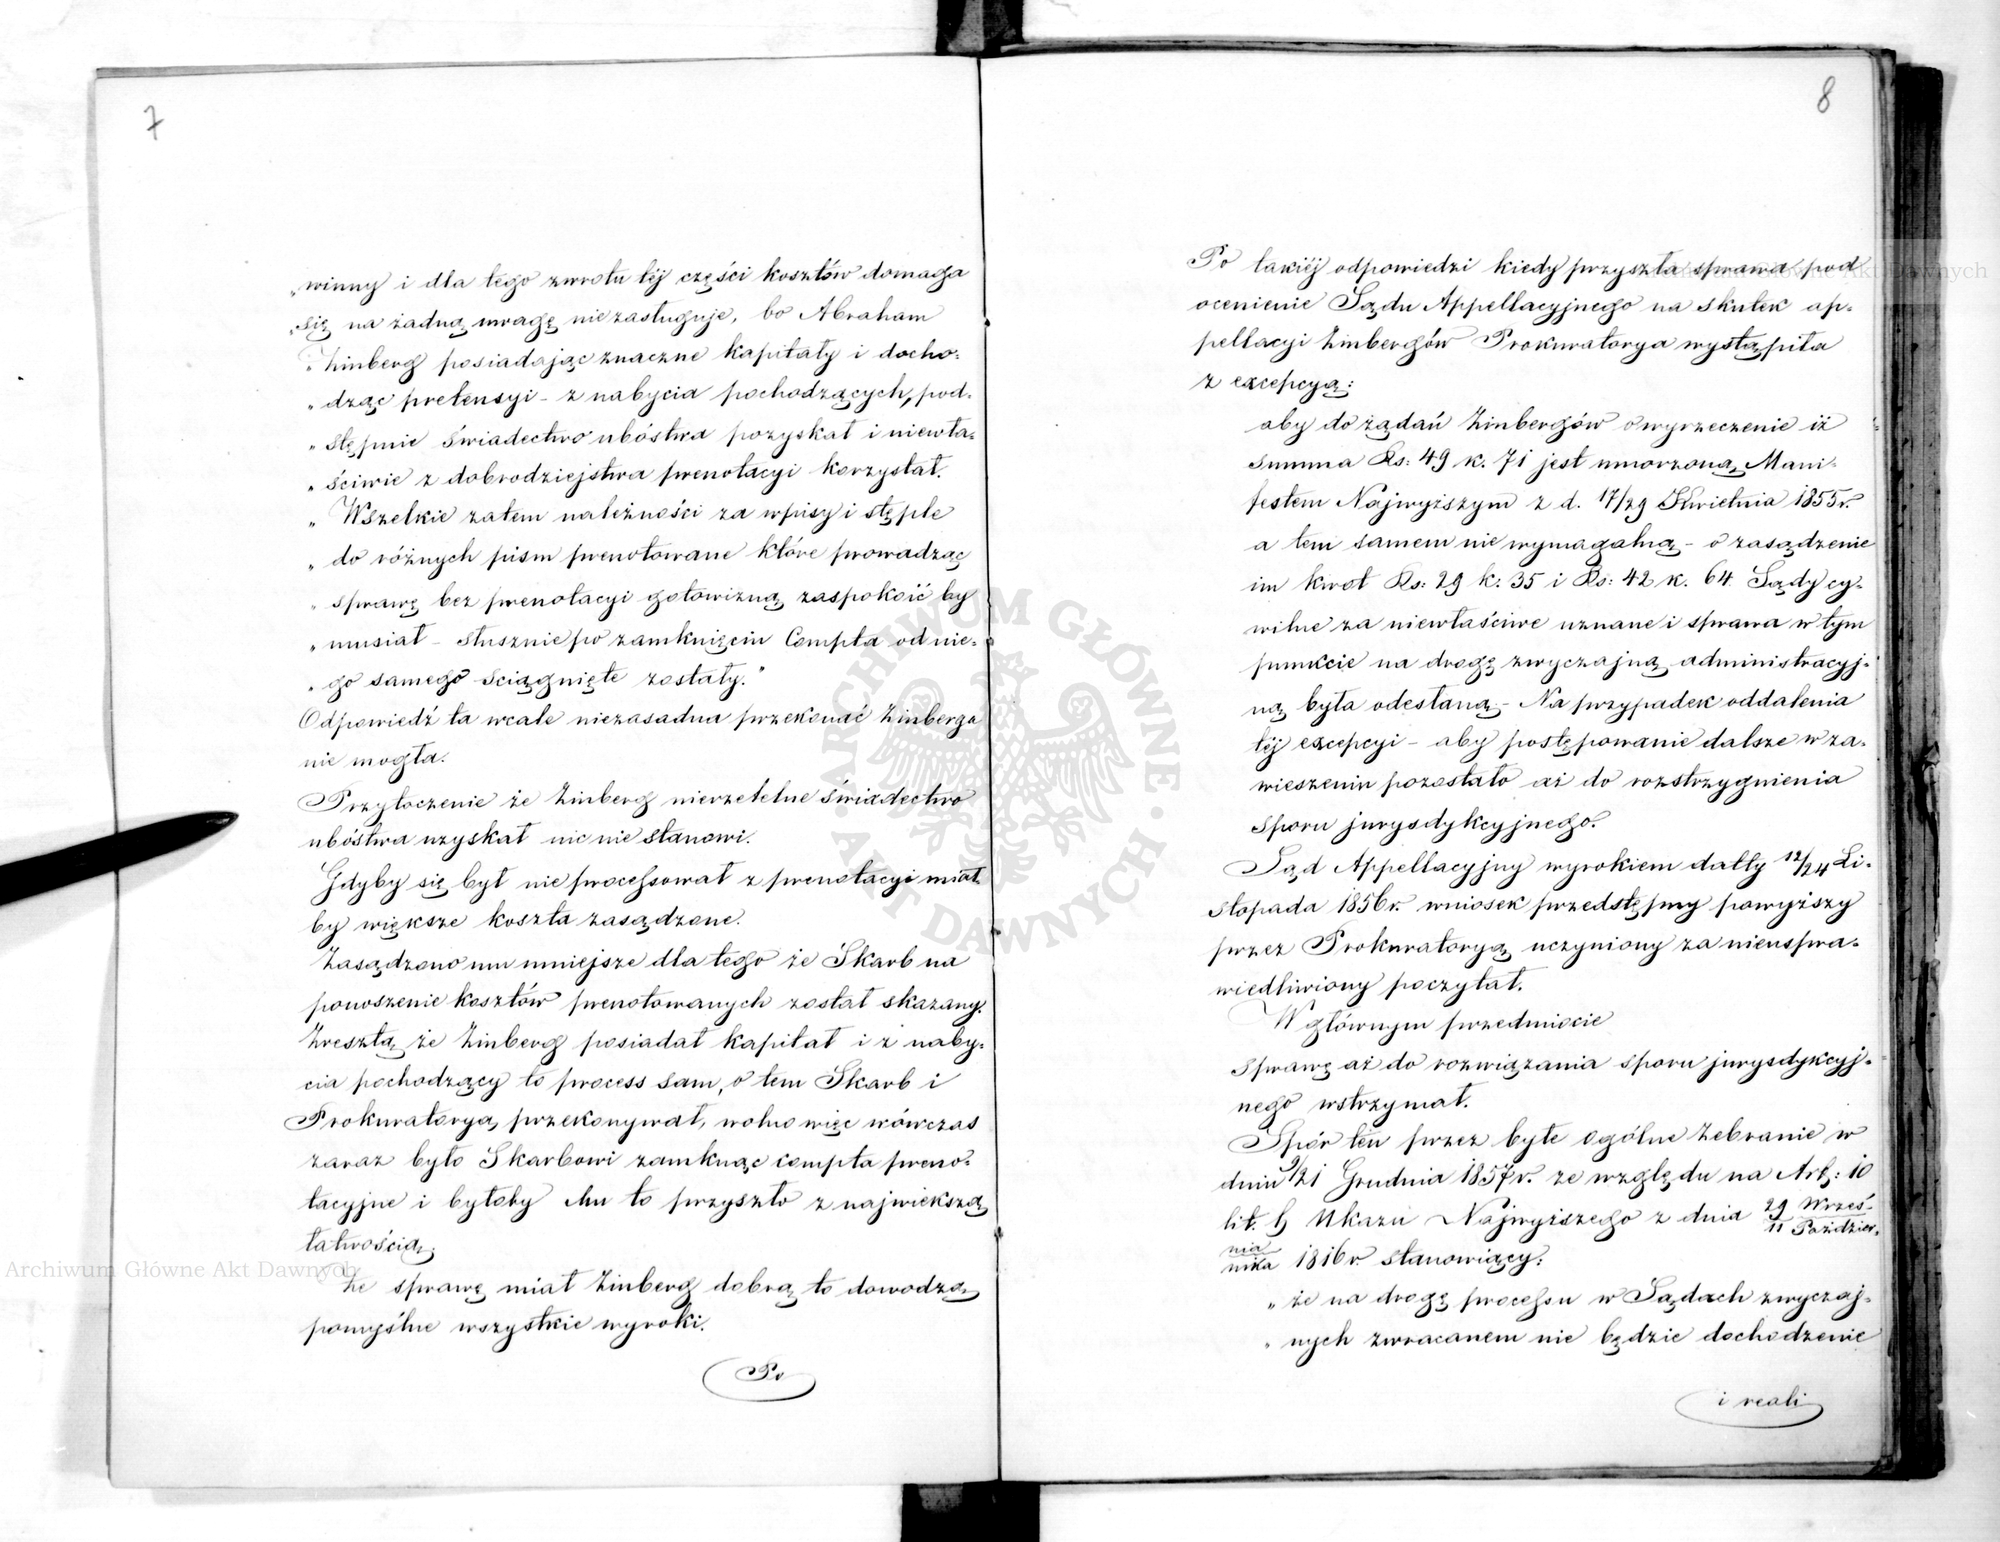 7
„winny i dla tego zwrotu téj części kosztów domaga
„się na żadną uwagę nie zasługuje, bo Abraham
„Zinberg posiadając znaczne kapitały i docho-
„dząc pretensyi – z nabycia pochodzących, pod-
„stępnie świadectwo ubóstwa pozyskał i niewła-
„ściwie z dobrodziejstwa prenotacyi korzystał.
„Wszelkie zatem należności za wpisy i stęple
„do różnych pism prenotowane które prowadząc
„sprawę bez prenotacyi gotowizną zaspokoić by
„musiał – słusznie po zamknięciu Compta od nie-
„go samego ściągnięte zostały."
Odpowiedź ta wcale niezasadna przekonać Zinberga
nie mogła.
Przytoczenie że Zinberg nierzetelne świadectwo
ubóstwa uzyskał nic nie stanowi.
Gdyby się był nie processował z prenotacyi miał
by większe koszta zasądzone.
Zasądzono mu mniejsze dla tego że Skarb na
ponoszenie kosztów prenotowanych został skazany.
Zresztą że Zinberg posiadał kapitał i z naby-
cia pochodzący to process sam, o tem Skarb i
Prokuratoryą przekonywał, wolno więc wówczas
zaraz było Skarbowi zamknąc compta preno-
tacyjne i byłoby Mu to przyszło z największą
łatwością.
Że sprawę miał Zinberg dobrą to dowodzą
pomyślne wszystkie wyroki.
Po
8
Po takiéj odpowiedzi kiedy przyszła sprawa pod
ocenienie Sądu Appellacyjnego na skutek ap-
pellacyi Zinbergów Prokuratorya wystąpiła
z excepcyą:
aby do żądań Zinbergów o wyrzeczenie iż
summa Rs: 49 k. 71 jest umorzoną Mani-
festem Najwyższym z d. 17/29 Kwietnia 1855 r.
a tem samem nie wymagalną – o zasądzenie
im kwot Rs: 29 k: 35 i Rs: 42 k. 64 Sądy cy-
wilne za niewłaściwe uznane i sprawa w tym
punkcie na drogę zwyczajną administracyj-
ną była odesłaną – Na przypadek oddalenia
téj excepcyi – aby postępowanie dalsze w za-
wieszeniu pozostało aż do rozstrzygnienia
sporu jurysdykcyjnego.
Sąd Appellacyjny wyrokiem datty 12/24 Li-
stopada 1856 r. wniosek przedstępny powyższy
przez Prokuratoryą uczyniony za nieuspra-
wiedliwiony poczytał.
W głównym przedmiocie
sprawę aż do rozwiązania sporu jurysdykcyj-
nego wstrzymał.
Spór ten przez byłe ogólne Zebranie w
dniu 9/21 Grudnia 1857 r. ze względu na Art: 10
lit. h Ukazu Najwyższego z dnia 29 Wrześ-/11 Paździer-
nia/nika 1816 r stanowiący:
„że na drogę processu w Sądach zwyczaj-
„nych zwracanem nie będzie dochodzenie
i reali
Archiwum Główne Akt Dawnych
Archiwum Główne Akt Dawnych
ARCHIWUM GŁÓWNE AKT DAWNYCH